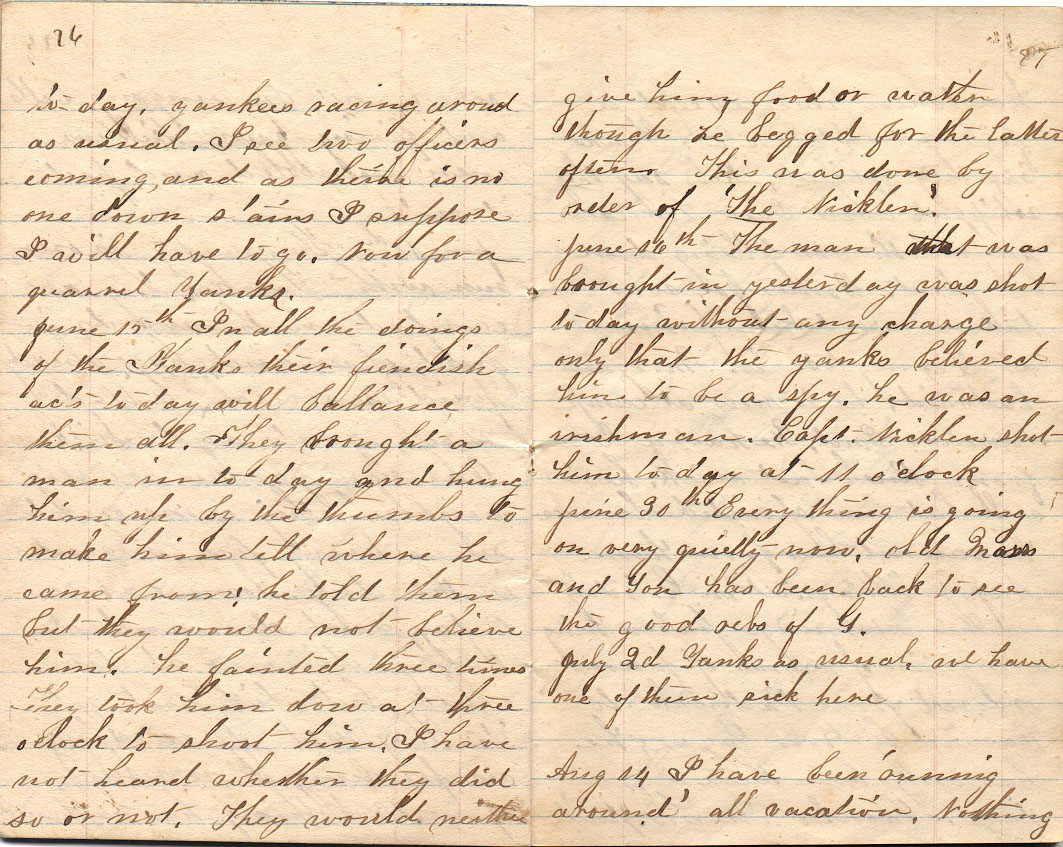 26
to day. yankees racing aroud
as usual. I see two officers
coming, and as there is no
one down stairs I suppose
I will have to go. now for a
quarrel Yanks.
June 15th In all the doings
of the Yanks their fiendish
acts to day will ballance
them all. They brought a
man in to day and hung
him up by the thumbs to
make him tell where he
came from. he told them
but they would not believe
him. he fainted three times
They took him down at three
oclock to shoot him. I have
not heard whether they did
so or not. They would neither
27
give him food or water
though he begged for the latter
often. This was done by
order of 'The Nicklen'.
June 16th The man that was
brought in yesterday was shot
to day without any charge
only that the yanks believed
him to be a spy. he was an
irishman. Capt. Nicklen shot
him to day at 11 o'clock
June 30th Every thing is going
on very quietly now. old
and Gon has been back to see
the good rebs of G.
July 2d Yanks as usual. we have
one of them sick here
Aug 14 I have been running
around all vacation. Nothing